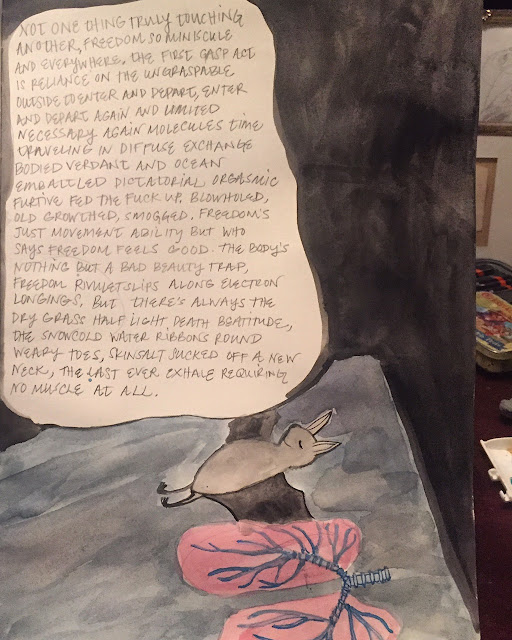 NOT ONE THING TRULY TOUCHING
ANOTHER, FREEDOM SO MINISCULE
AND EVERYWHERE. THE FIRST GASP ACT
IS RELIANCE ON THE UNGRASPABLE
OUTSIDE TO ENTER AND DEPART, ENTER
AND DEPART AGAIN AND LIMITED
NECESSARY AGAIN MOLECULES TIME
TRAVELING IN DIFFUSE EXCHANGE
BODIED VERDANT AND OCEAN
EMBATTLED DICTATORIAL ORGASMIC
FURTIVE FED THE FUCK UP. BLOWHOLED,
OLD GROWTHED, SMOGGED. FREEDOM'S
JUST MOVEMENT ABILITY BUT WHO
SAYS FREEDOM FEELS GOOD. THE BODY'S
NOTHING BUT A BAD BEAUTY TRAP,
FREEDOM RIVULET SLIPS ALONG ELECTRON
LONGINGS, BUT THERE'S ALWAYS THE
DRY GRASS HALF LIGHT DEATH BEATITUDE,
THE SNOWCOLD WATER RIBBONS ROUND
WEARY TOES, SKINSALT SUCKED OFF A NEW
NECK, THE LAST EVER EXHALE REQUIRING
NO MUSCLE AT ALL.